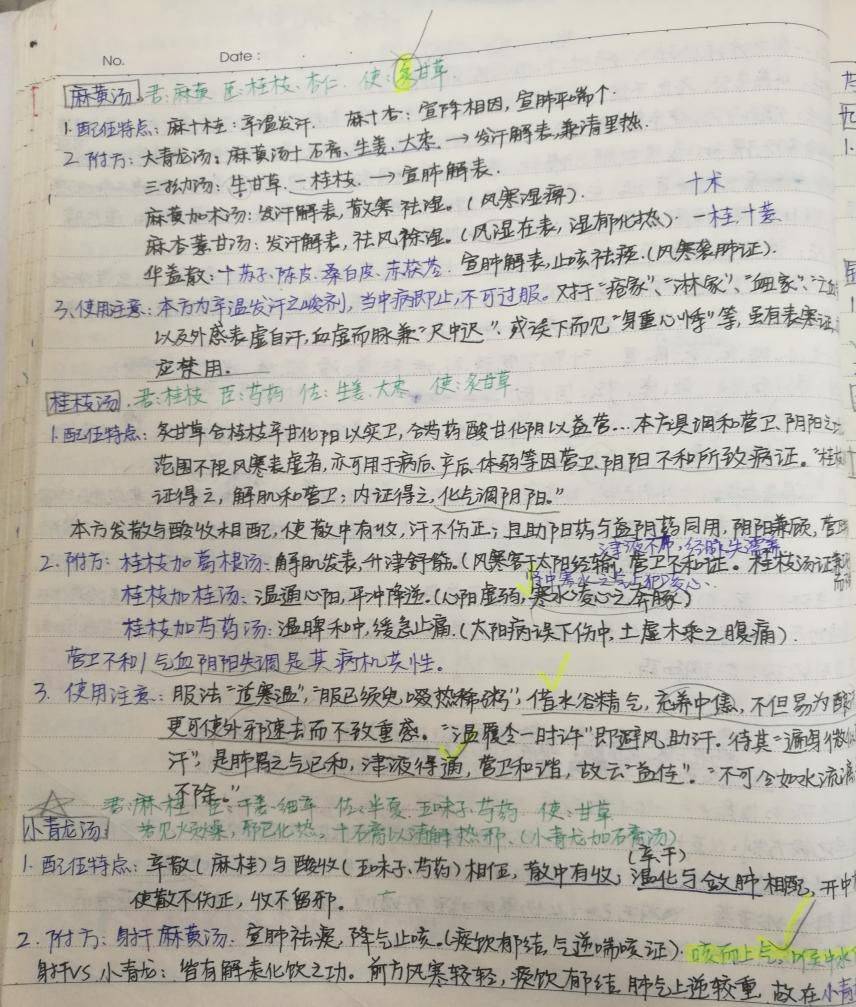 No. Date:
麻黄汤 君:麻黄 臣:桂枝、杏仁 使:炙甘草
1.配伍特点:麻+桂:辛温发汗. 麻+杏:宣降相因,宣肺平喘
2.附方:大青龙汤:麻黄汤+石膏、生姜、大枣.→发汗解表,兼清里热.
三拗汤:生甘草、一桂枝.→宣肺解表.
十术
麻黄加术汤:发汗解表,散寒祛湿。(风寒湿痹).
麻杏薏甘汤:发汗解表,祛风除湿。(风湿在表,湿郁化热) 一桂,十薏
华盖散:十苏子、陈皮、桑白皮、赤茯苓. 宣肺解表,止咳祛痰.(风寒袭肺证).
3、使用注意:本方为辛温发汗之峻剂,当中病即止,不可过服。对于“疮家”、“淋家”、“血家”、
以及外感表虚自汗,血虚而脉兼“尺中迟”、或误下而见“身重心悸”等,虽有表寒证,
应禁用.
桂枝汤.君:桂枝 臣:芍药 佐:生姜、大枣、使:炙甘草
1.配伍特点:炙甘草合桂枝辛甘化阳以实卫,合芍药酸甘化阴以益营…本方具调和营卫、阴阳之
范围不限风寒表虚者,亦可用于病后、产后、体弱等因营卫、阴阳不和所致病证。“桂枝
证得之,解肌和营卫;内证得之,化气调阴阳。”
本方发散与酸收相配,使散中有收,汗不伤正;且助阳药与益阴药同用,阴阳兼顾,营
津液不布,经脉失濡养
2.附方:桂枝加葛根汤:解肌发表,升津舒筋。(风寒客于太阳经输,营卫不和证。桂枝汤证兼
桂枝加桂汤:温通心阳,平冲降逆.(心阳虚弱,寒水凌心之奔豚)
桂枝加芍药汤:温脾和中,缓急止痛.(太阳病误下伤中,土虚木乘之腹痛).
营卫不和/气血阴阳失调是其病机共性。
3.使用注意:服法“适寒温”,“服已须臾,啜热稀粥”,借水谷精气,充养中焦,不但易为酿
更可使外邪速去而不致重感。“温覆令一时许”即避风助汗。待其“遍身
汗”,是肺胃之气已和,津液得通,营卫和谐,故云“益佳”。“不可令如水流漓
不除。”
君:麻、桂 臣:干姜、细辛 佐:半夏、五味子、芍药 使:甘草
小青龙汤:若见烦躁,邪已化热,十石膏以清解热邪、(小青龙加石膏汤)
(辛干)
1.配伍特点:辛散(麻桂)与酸收(五味子、芍药)相伍,散中有收;温化与敛肺相配,开中
使散不伤正,收不留邪。
2.附方:射干麻黄汤:宣肺祛痰,降气止咳.(痰饮郁结,气逆喘咳证).咳而上气,
射干VS小青龙:皆有解表化饮之功。前方风寒较轻,痰饮郁结,肺气上逆较重,故在小青